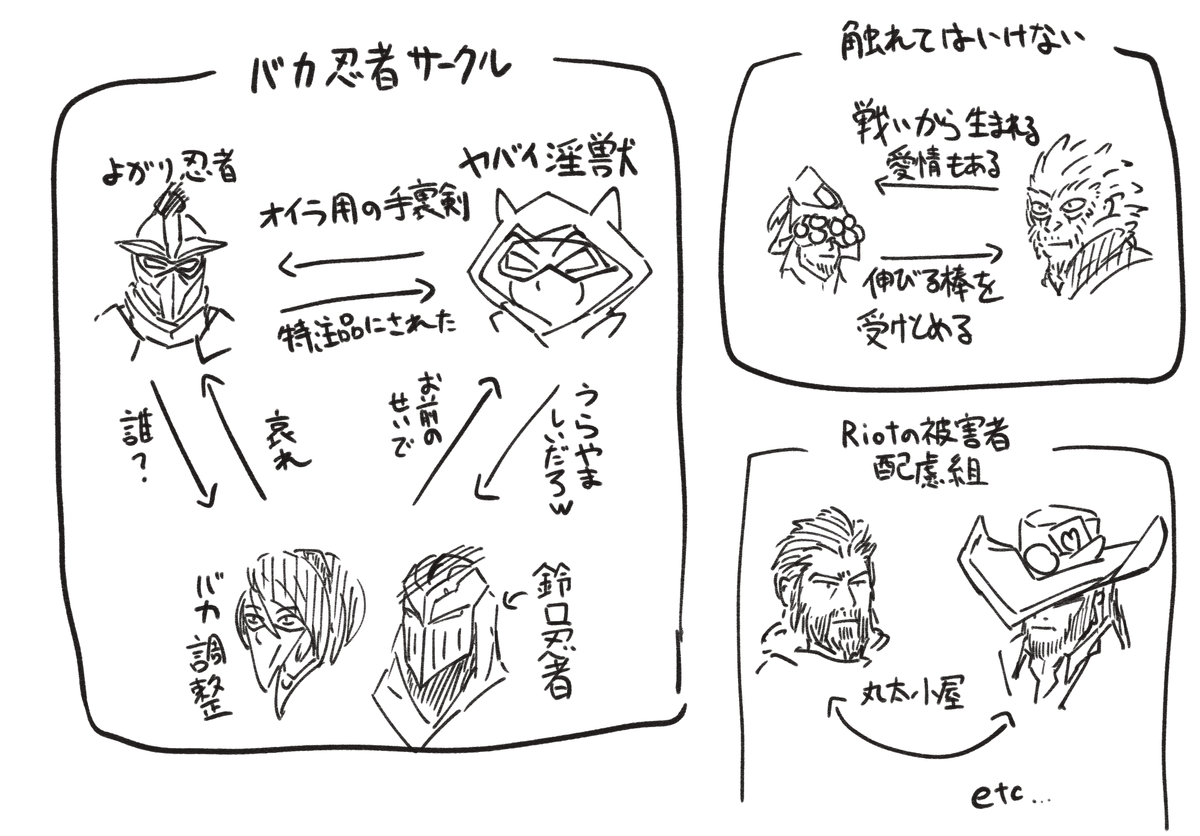 バカ忍者サークル
よがり忍者
ヤバイ淫獣
オイラ用の手裏剣
特注品にされた
誰?
哀れ
お前の
せいで
うらやま
しいだろw
バカ調整
鈴口忍者
触れてはいけない
戦いから生まれる
愛情もある
伸びる棒を
受けとめる
Riotの被害者
配慮組
丸太小屋
etc...